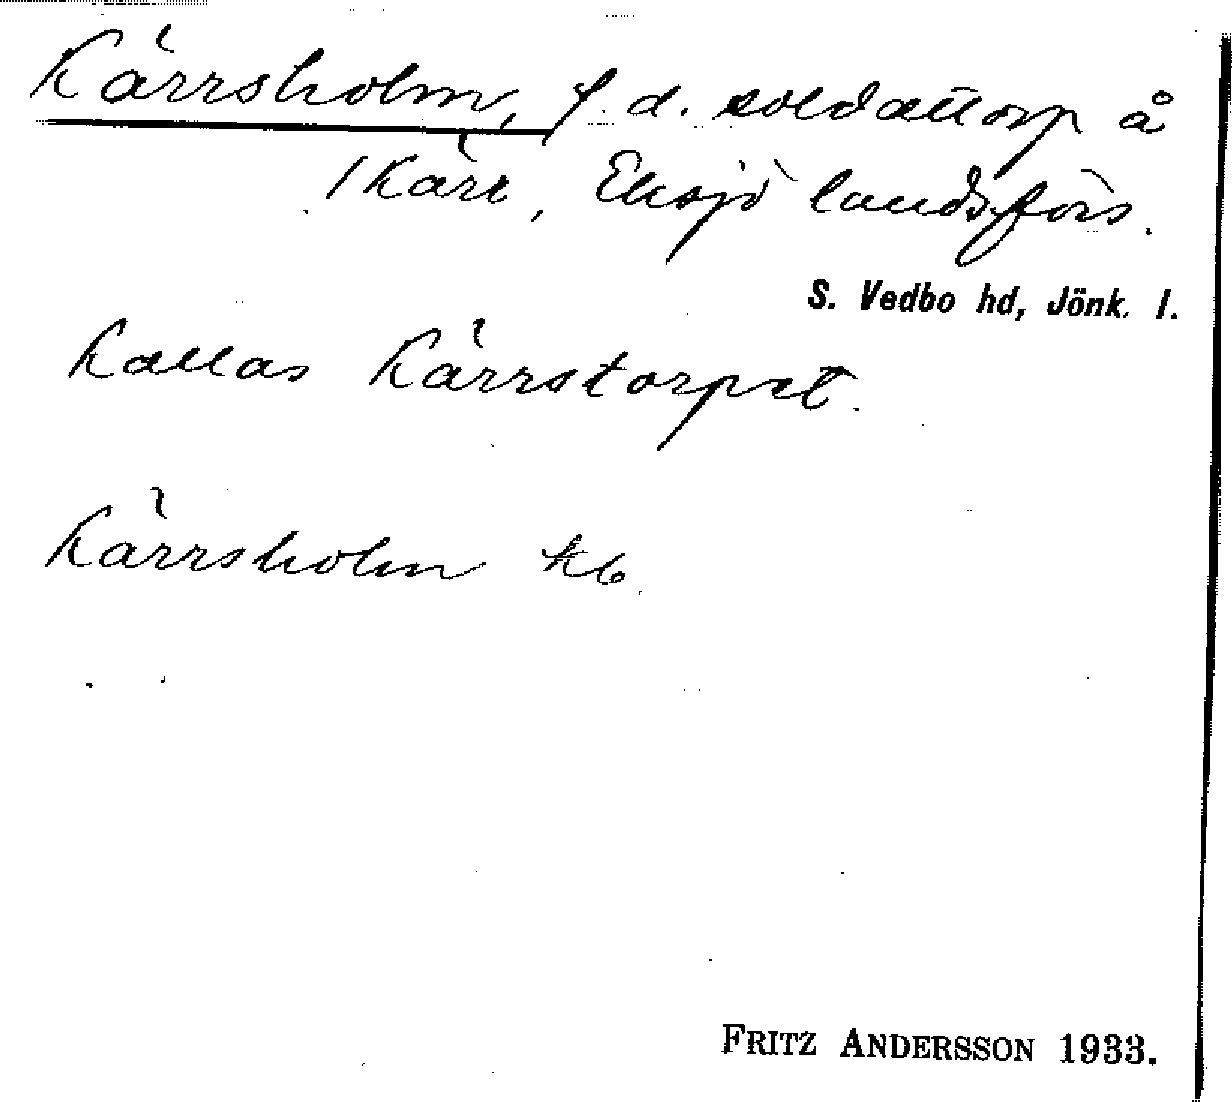 Kärrsholm, f. d. soldattorp å
/ Kärr, Eksjö landsförs.
S. Vedbo hd, Jönk. l.
Kallas Kärrstorpet.
Kärrsholm kb.
FRITZ ANDERSSON 1933.